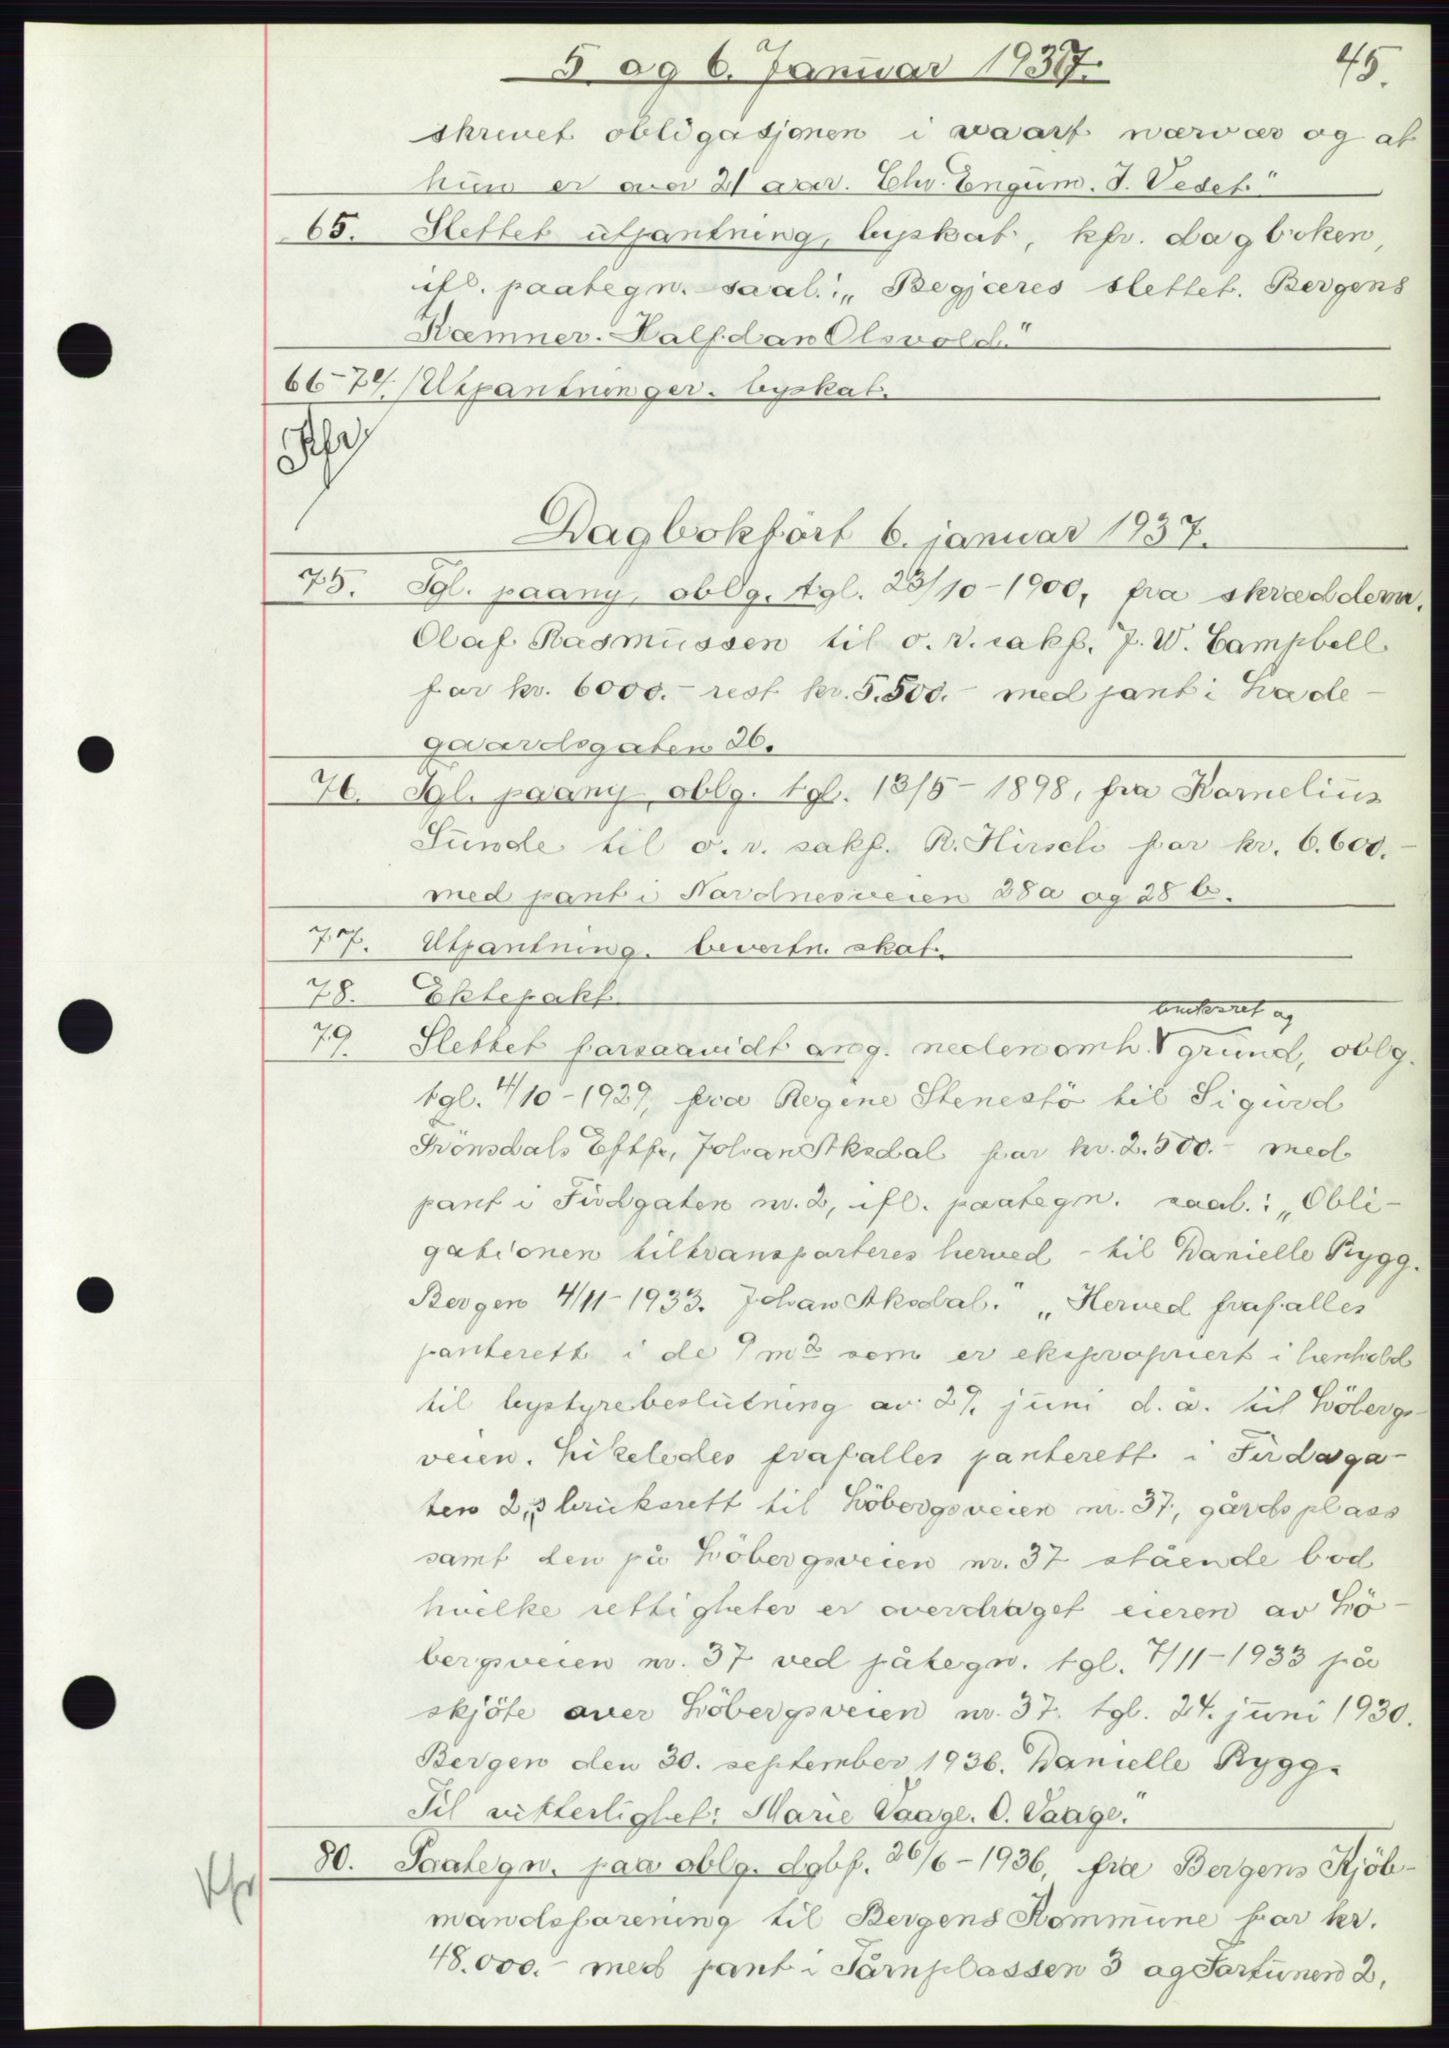 5 og 6. Januar 1937.
45.
skrevet obligasjonen i vaart nærvær og at
hun er over 21 aar. Chr. Engum. J. Vedet."
65. Slettet utpantning, byskat, kfr. dagboken,
ifl. paategn. saal.: „Begjæres slettet. Bergens
Kæmner. Halfdan Olsvold."
66-74. Utpantninger. byskat.
Dagbokført 6. januar 1937.
75. Tgl. paany, oblg. tgl. 23/10-1900, fra skræddern.
Olaf Rasmussen til o.r.sakf. J. W. Campbell
for kr. 6000.- rest kr. 5.500.- med pant i Lade-
gaardsgaten 26.
76. Tgl. paany, oblg. tgl. 13/5-1898, fra Kornelius
Sunde til o.r.sakf. R. Hirsch for kr. 6.600.-
med pant i Nordnesveien 28a og 28b.
77. Utpantning. bevertn. skat.
78. Ektepakt.
bruksret og
79. Slettet forsaavidt ang. nedenomh. V grund, oblg.
tgl. 4/10-1929, fra Regine Stenestö til Sigurd
Frönsdals Eftf., Johan Aksdal for kr. 2.500.- med
pant i Firdgaten nr. 2, ifl. paategn. saal.: „Obli-
gationen tiltransporteres herved - til Danielle Rygg.
Bergen 4/11-1933. Johan Aksdal." „Herved frafalles
panterett i de 9 m2 som er ekspropriert i henhold
til bystyrebeslutning av 29. juni d. å. til Löbergs-
veien. Likeledes frafalles panterett i Firdaga-
ten 2,s bruksrett til Löbergsveien nr. 37, gårdsplass
samt den på Löbergsveien nr. 37 stående bod
hvilke rettigheter er overdraget eieren av Lö-
bergsveien nr. 37 ved påtegn. tgl. 7/11-1933 på
skjöte over Löbergsveien nr. 37. tgl. 24. juni 1930.
Bergen den 30. september 1936. Danielle Rygg.
Til vitterlighet: Marie Vaage. O. Vaage."
80. Paategn. paa oblg. dgbf. 26/6-1936, fra Bergens Kjöb-
mandsforening til Bergens Kommune for kr.
48.000.- med pant i Tårnplassen 3 og Fortunen 2,